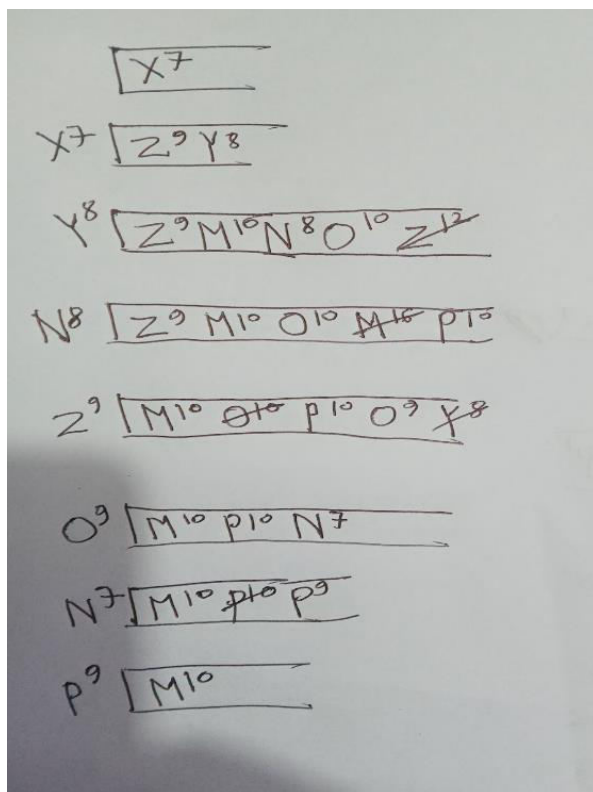 X⁷
X⁷ Z⁹ Y⁸
Y⁸ Z⁹ M¹⁰ N⁸ O¹⁰ Z¹²
N⁸ Z⁹ M¹⁰ O¹⁰ M¹⁶ P¹⁰
Z⁹ M¹⁰ O¹⁰ P¹⁰ O⁹ Y⁸
O⁹ M¹⁰ P¹⁰ N⁷
N⁷ M¹⁰ P¹⁰ P⁹
P⁹ M¹⁰